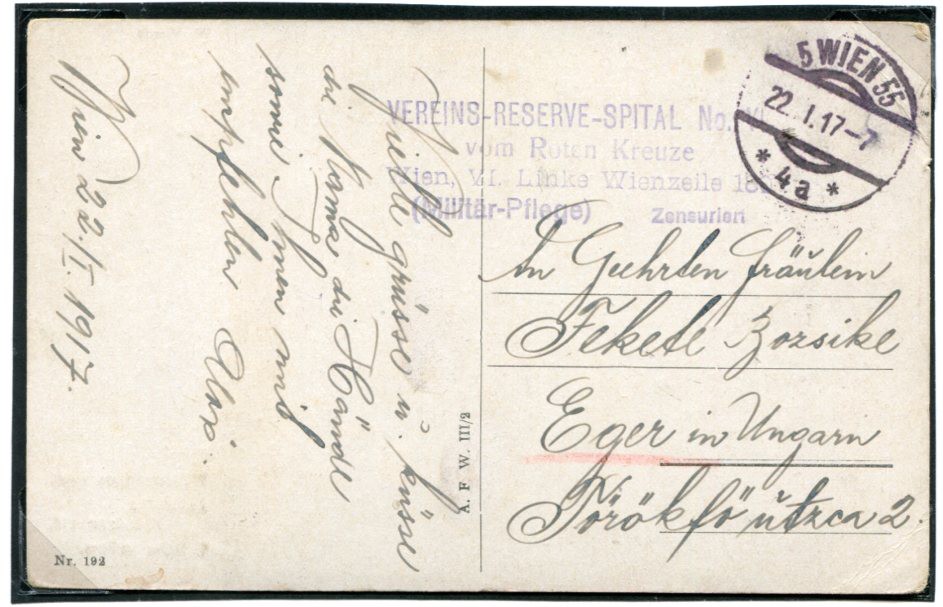 Wien 22./I. 1917.
Viele grüsse u. küsse
die Mama die Hände
sowie Ihnen mit
empfehlen
Nr. 192
A. F. W. III/2
VEREINS-RESERVE-SPITAL No.
vom Roten Kreuze
Wien, VI. Linke Wienzeile
(Militär-Pflege) Zensuriert
5 WIEN 55
22. I. 17-7
* 4a *
An Geehrten Fräulein
Fekete Bozsike
Eger in Ungarn
Törökfö útzca 2.